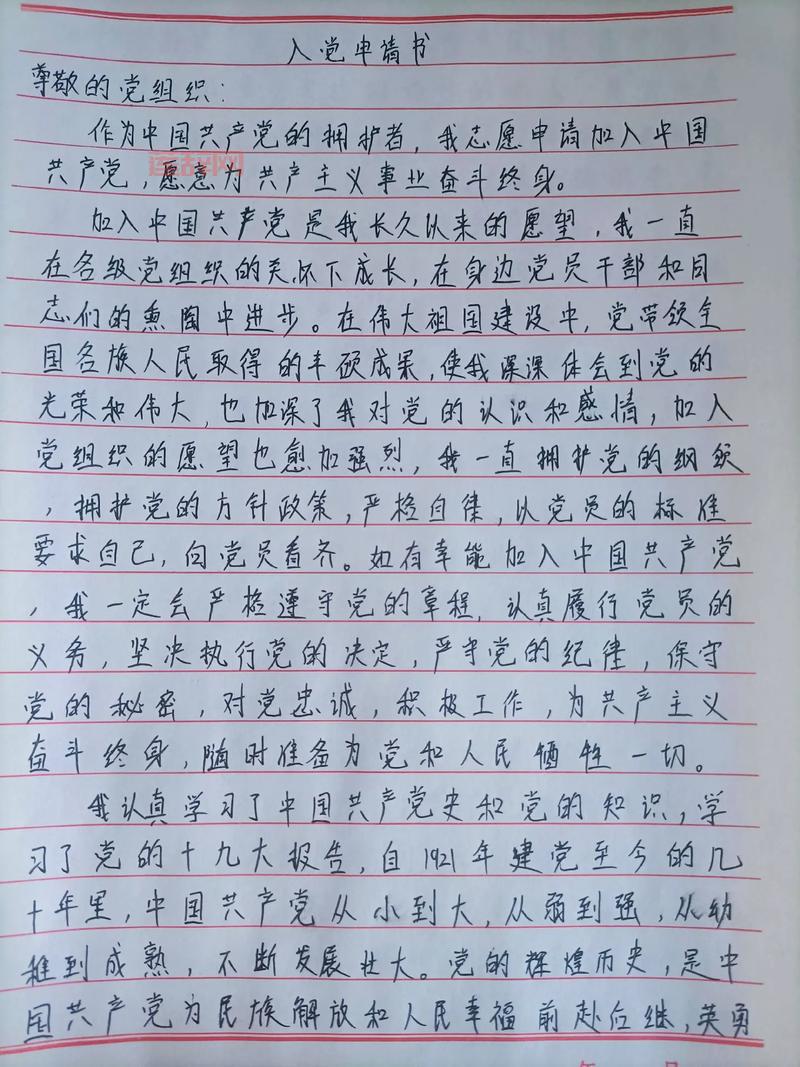 入党申请书
尊敬的党组织：
作为中国共产党的拥护者，我志愿申请加入中国
共产党，愿意为共产主义事业奋斗终身。
加入中国共产党是我长久以来的愿望，我一直
在各级党组织的关怀下成长，在身边党员干部和同
志们的熏陶中进步。在伟大祖国建设中，党带领全
国各族人民取得的丰硕成果，使我深深体会到党的
光荣和伟大，也加深了我对党的认识和感情，加入
党组织的愿望也愈加强烈，我一直拥护党的纲领
，拥护党的方针政策，严格自律，以党员的标准
要求自己，向党员看齐。如有幸能加入中国共产党
，我一定会严格遵守党的章程，认真履行党员的
义务，坚决执行党的决定，严守党的纪律，保守
党的秘密，对党忠诚，积极工作，为共产主义
奋斗终身，随时准备为党和人民牺牲一切。
我认真学习了中国共产党史和党的知识，学
习了党的十九大报告，自1921年建党至今的几
十年里，中国共产党从小到大，从弱到强，从幼
稚到成熟，不断发展壮大。党的辉煌历史，是中
国共产党为民族解放和人民幸福前赴后继，英勇